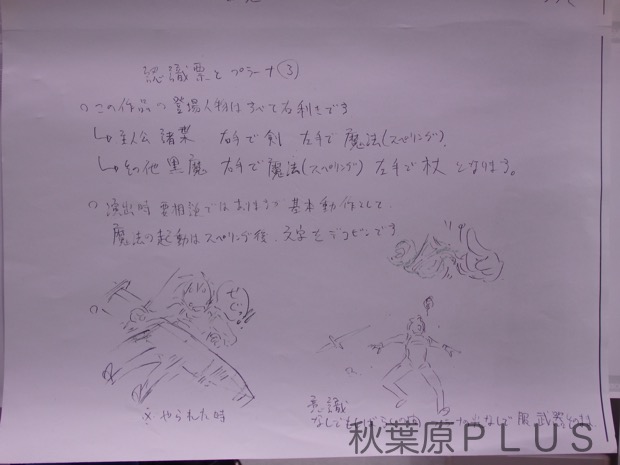 認識票とプラーナ③
○この作品の登場人物はすべて右利きです
↳主人公 諸葉 右手で剣 左手で魔法(スペリング)。
↳その他 黒魔 右手で魔法(スペリング) 左手で杖 となります。
○演出時要相談ではありますが 基本動作として、
魔法の起動はスペリング後、文字をデコピンです
やられた時
意識
なしでも
服 武器
秋葉原PLUS